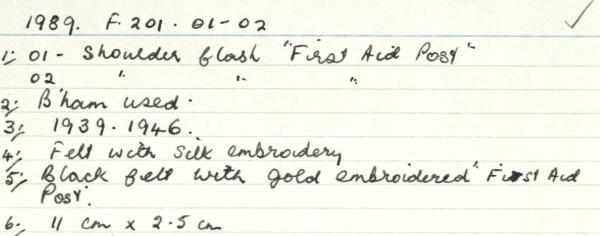 1989. F. 201. 01-02
1; 01 - Shoulder flash "First Aid Post"
02 " " "
2; B'ham used.
3; 1939-1946.
4; Felt with silk embroidery
5; Black felt with gold embroidered "First Aid
Post.
6; 11 cm x 2.5 cm